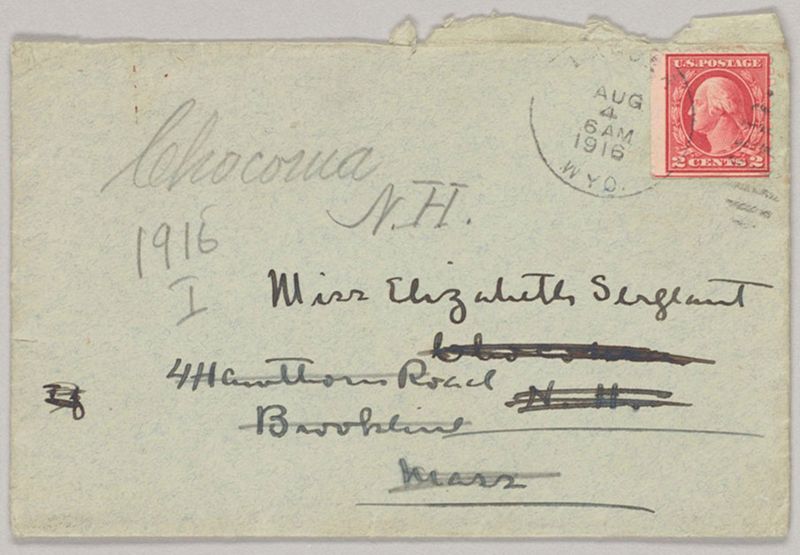 U.S. POSTAGE
2 CENTS 2
AUG
4
6 AM
1916
WYO.
Chocorua
N.H.
1916
I
Miss Elizabeth Sergeant
4 Hawthorn Road
N. H.
Brookline
Mass